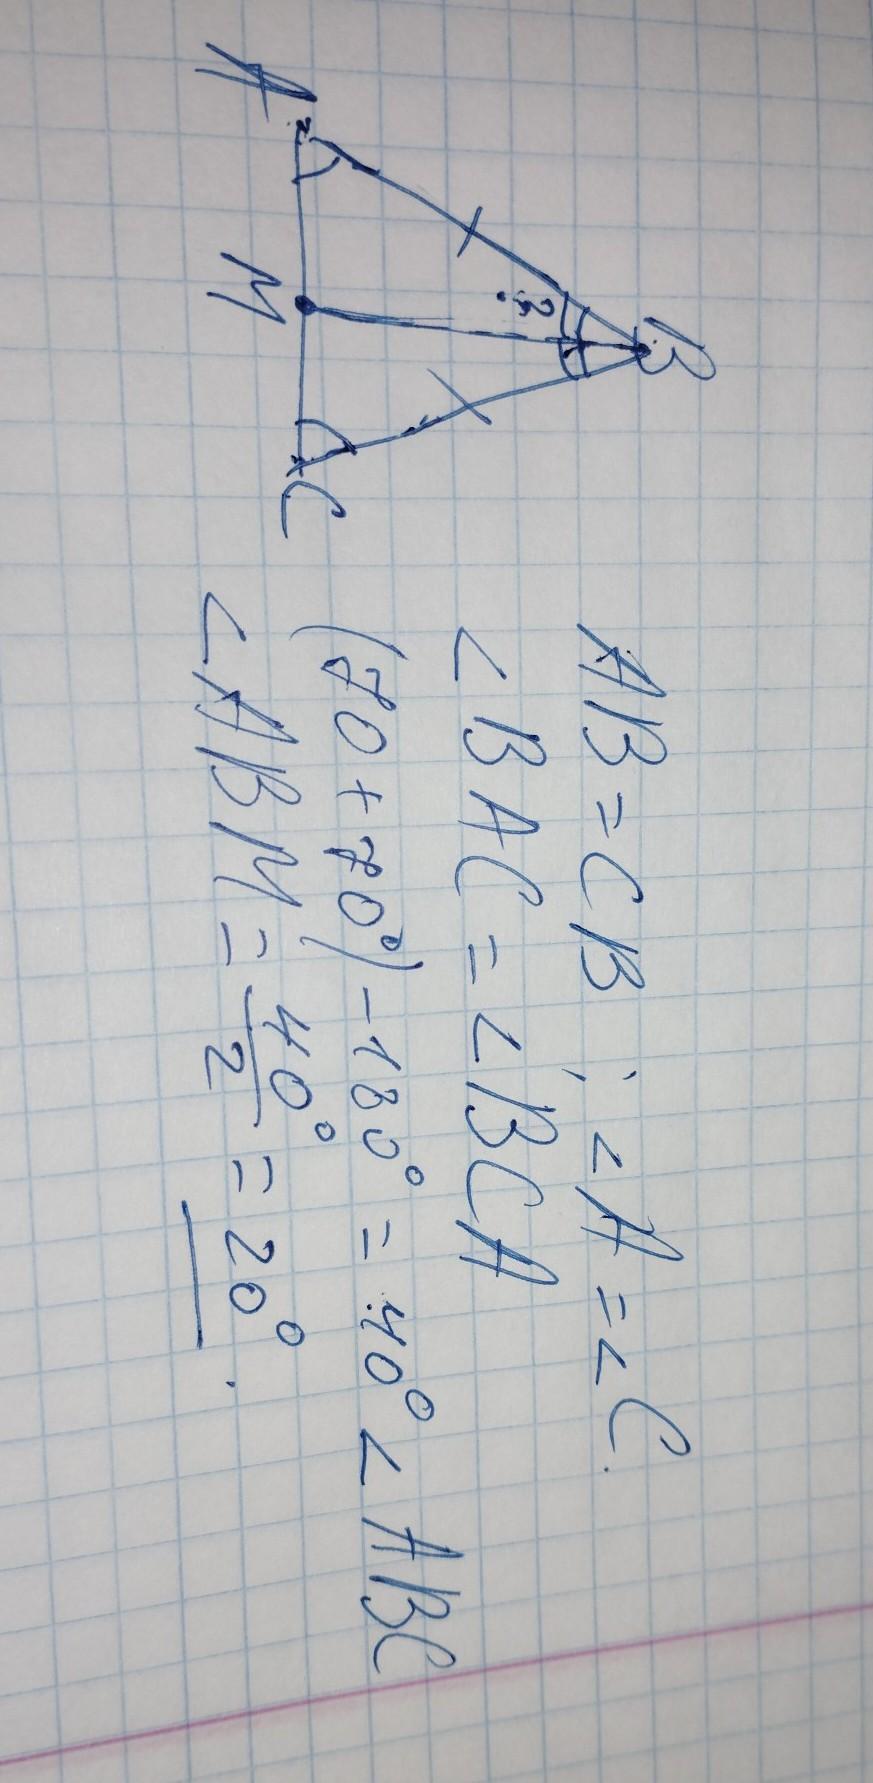 B
?
A
M
C
AB = CB ; ∠A = ∠C.
∠BAC = ∠BCA
(70 + 70°) - 180° = 40° ∠ABC
∠ABM = 40°/2 = 20°.